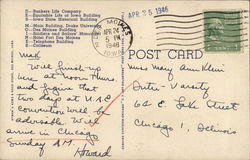 H—Bankers Life Company
E—Equitable Life of Iowa Building
S—Iowa State Historical Building
M—Main Building, Drake University
O—Des Moines Building
I—Soldiers and Sailors Monument
N—Hotel Fort Des Moines
E—Telephone Building
S—Coliseum
DES MOINES
APR 24
5 PM
1946
IOWA
APR 25 1946
POST CARD
Will finish up
here at noon Thurs
and figure that
two days at
convention will be
advisable. Will
arrive in Chicago
Sunday AM.
Howard
Miss Mary Ann Klein
Inter-Varsity
64 E. Lake Street
Chicago 1, Illinois